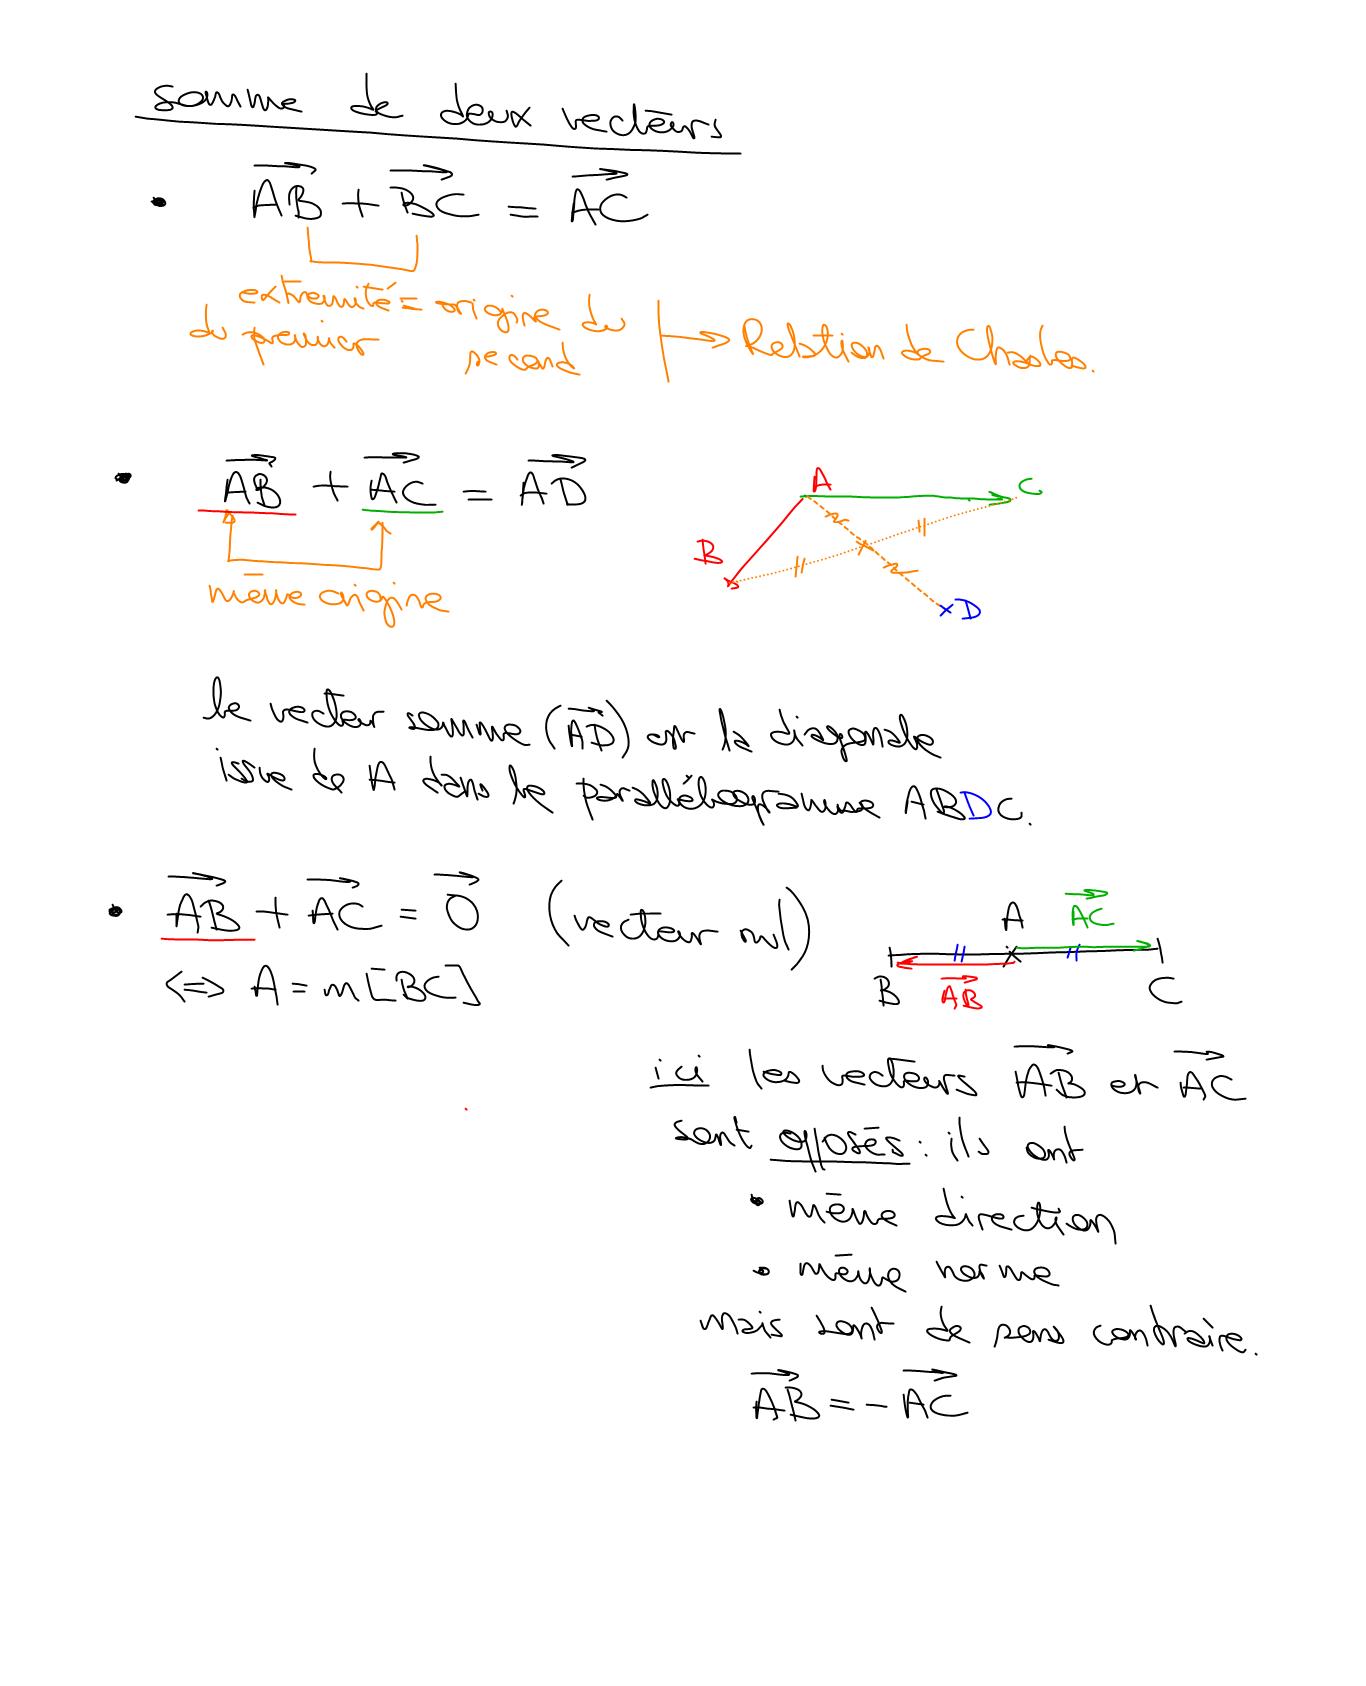 somme de deux vecteurs
• $\overrightarrow{AB} + \overrightarrow{BC} = \overrightarrow{AC}$
extremité = origine du
du premier second
Relation de Chasles.
• $\overrightarrow{AB} + \overrightarrow{AC} = \overrightarrow{AD}$
même origine
A
C
B
D
le vecteur somme ($\overrightarrow{AD}$) est la diagonale
issue de A dans le parallélogramme ABDC.
• $\overrightarrow{AB} + \overrightarrow{AC} = \overrightarrow{0}$ (vecteur nul)
⇔ A = m[BC]
A $\overrightarrow{AC}$
B $\overrightarrow{AB}$ C
ici les vecteurs $\overrightarrow{AB}$ et $\overrightarrow{AC}$
sont opposés : ils ont
• même direction
• même norme
mais sont de sens contraire.
$\overrightarrow{AB} = -\overrightarrow{AC}$